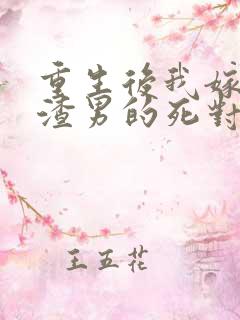 重生後我嫁
渣男的死對
王五花